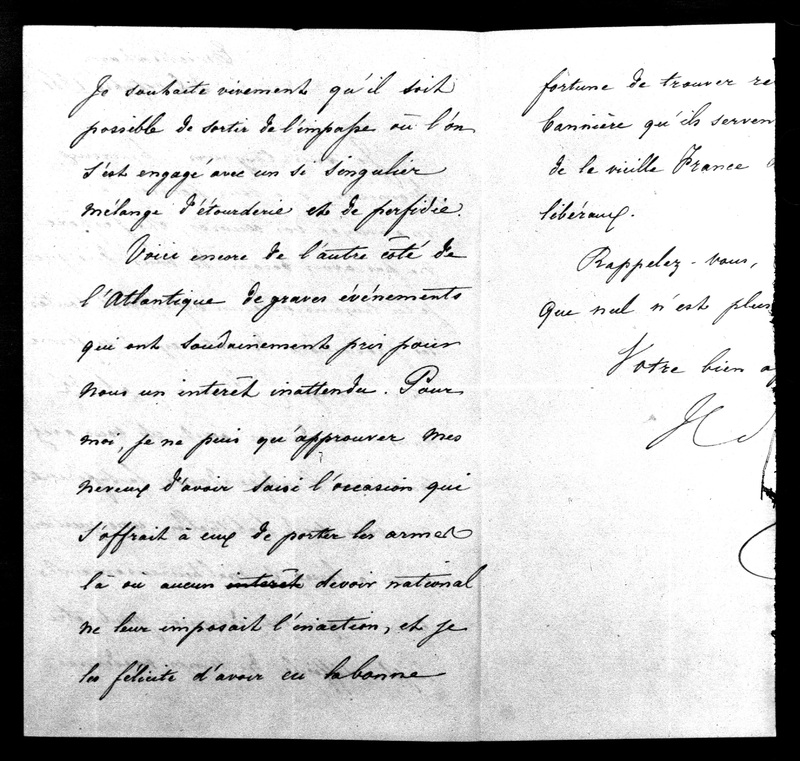 Je souhaite vivement qu'il soit
possible de sortir de l'impasse où l'on
s'est engagé avec un si singulier
mélange d'étourderie et de perfidie.
Voici encore de l'autre côté de
l'Atlantique de graves événements
qui ont soudainement pris pour
nous un interêt inattendu. Pour
moi, je ne puis qu'approuver mes
neveux d'avoir saisi l'occasion qui
s'offrait à eux de porter les armes
là ou aucun interêt devoir national
ne leur imposait l'inaction, et je
les félicite d'avoir eu la bonne
fortune de trouver
bannière qu'ils
de la vieille France
libéraux.
Rappelez-vous,
que nul n'est plus
Votre bien